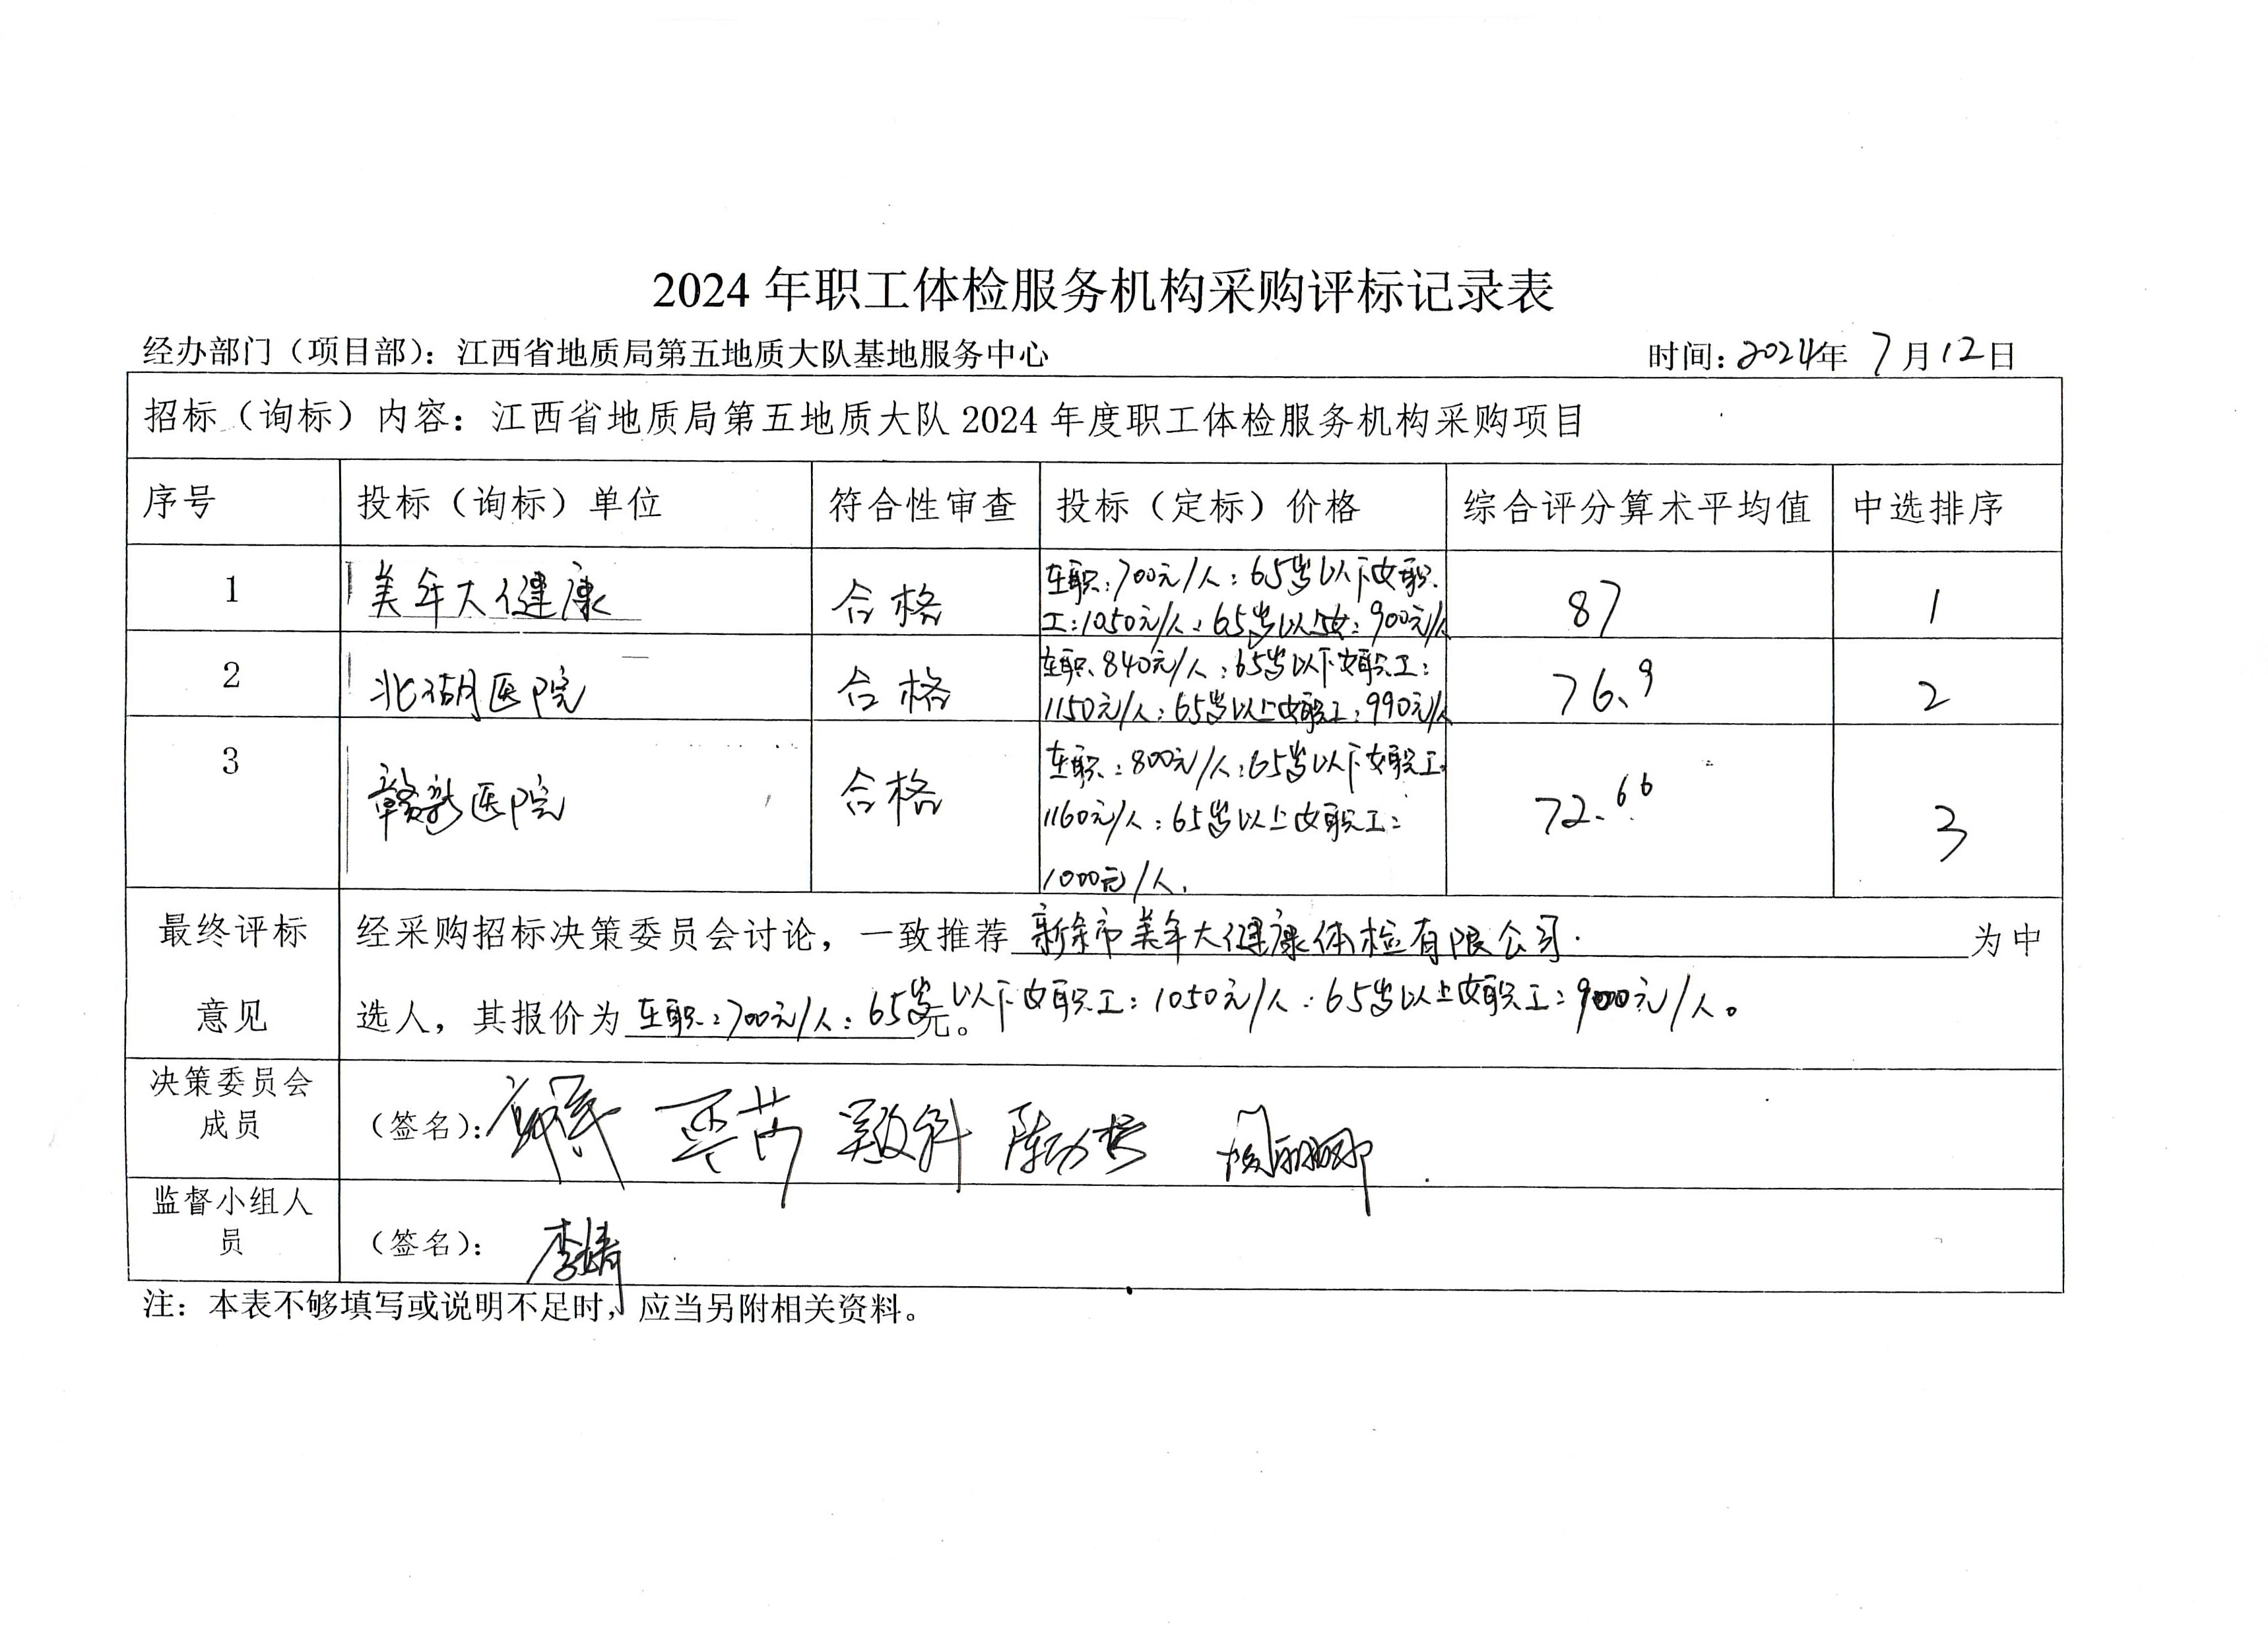 2024 年职工体检服务机构采购评标记录表
经办部门（项目部）：江西省地质局第五地质大队基地服务中心 时间：2024年 7月12日
招标（询标）内容：江西省地质局第五地质大队 2024 年度职工体检服务机构采购项目
序号 投标（询标）单位 符合性审查 投标（定标）价格 综合评分算术平均值 中选排序
1 美年大健康 合格 在职：700元/人：65岁以下女职
工：1050元/人：65岁以上女：900元/人 87 1
2 北湖医院 合格 在职：840元/人：65岁以下女职工：
1150元/人：65岁以上女职工：990元/人 76.9 2
3 赣新医院 合格 在职：800元/人：65岁以下女职工：
1160元/人：65岁以上女职工：
1000元/人. 72.66 3
最终评标
意见
经采购招标决策委员会讨论，一致推荐 新余市美年大健康体检有限公司. 为中
选人，其报价为 在职：700元/人：65岁以下女职工：1050元/人：65岁以上女职工：900元/人。 元。
决策委员会
成员
（签名）：
监督小组人
员
（签名）： 李婧
注：本表不够填写或说明不足时，应当另附相关资料。